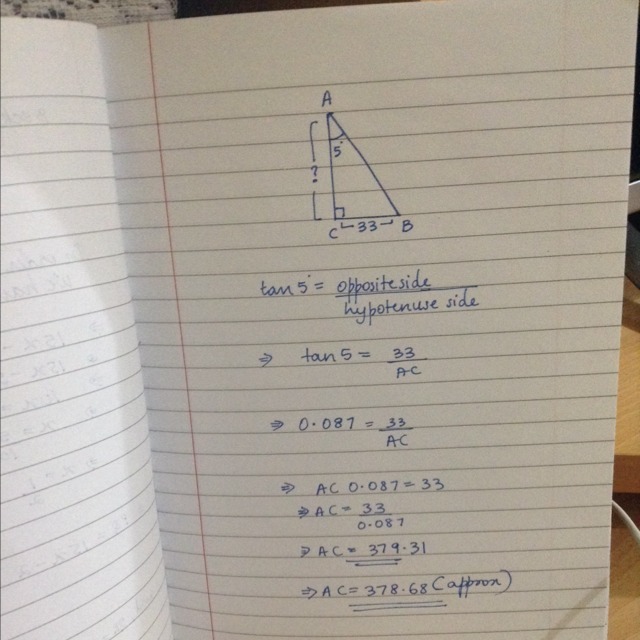 A
5°
?
C 33 B
tan 5° = opposite side
hypotenuse side
⇒ tan 5 = 33
AC
⇒ 0.087 = 33
AC
⇒ AC 0.087 = 33
⇒ AC = 33
0.087
⇒ AC = 379.31
⇒ AC = 378.68 (approx)